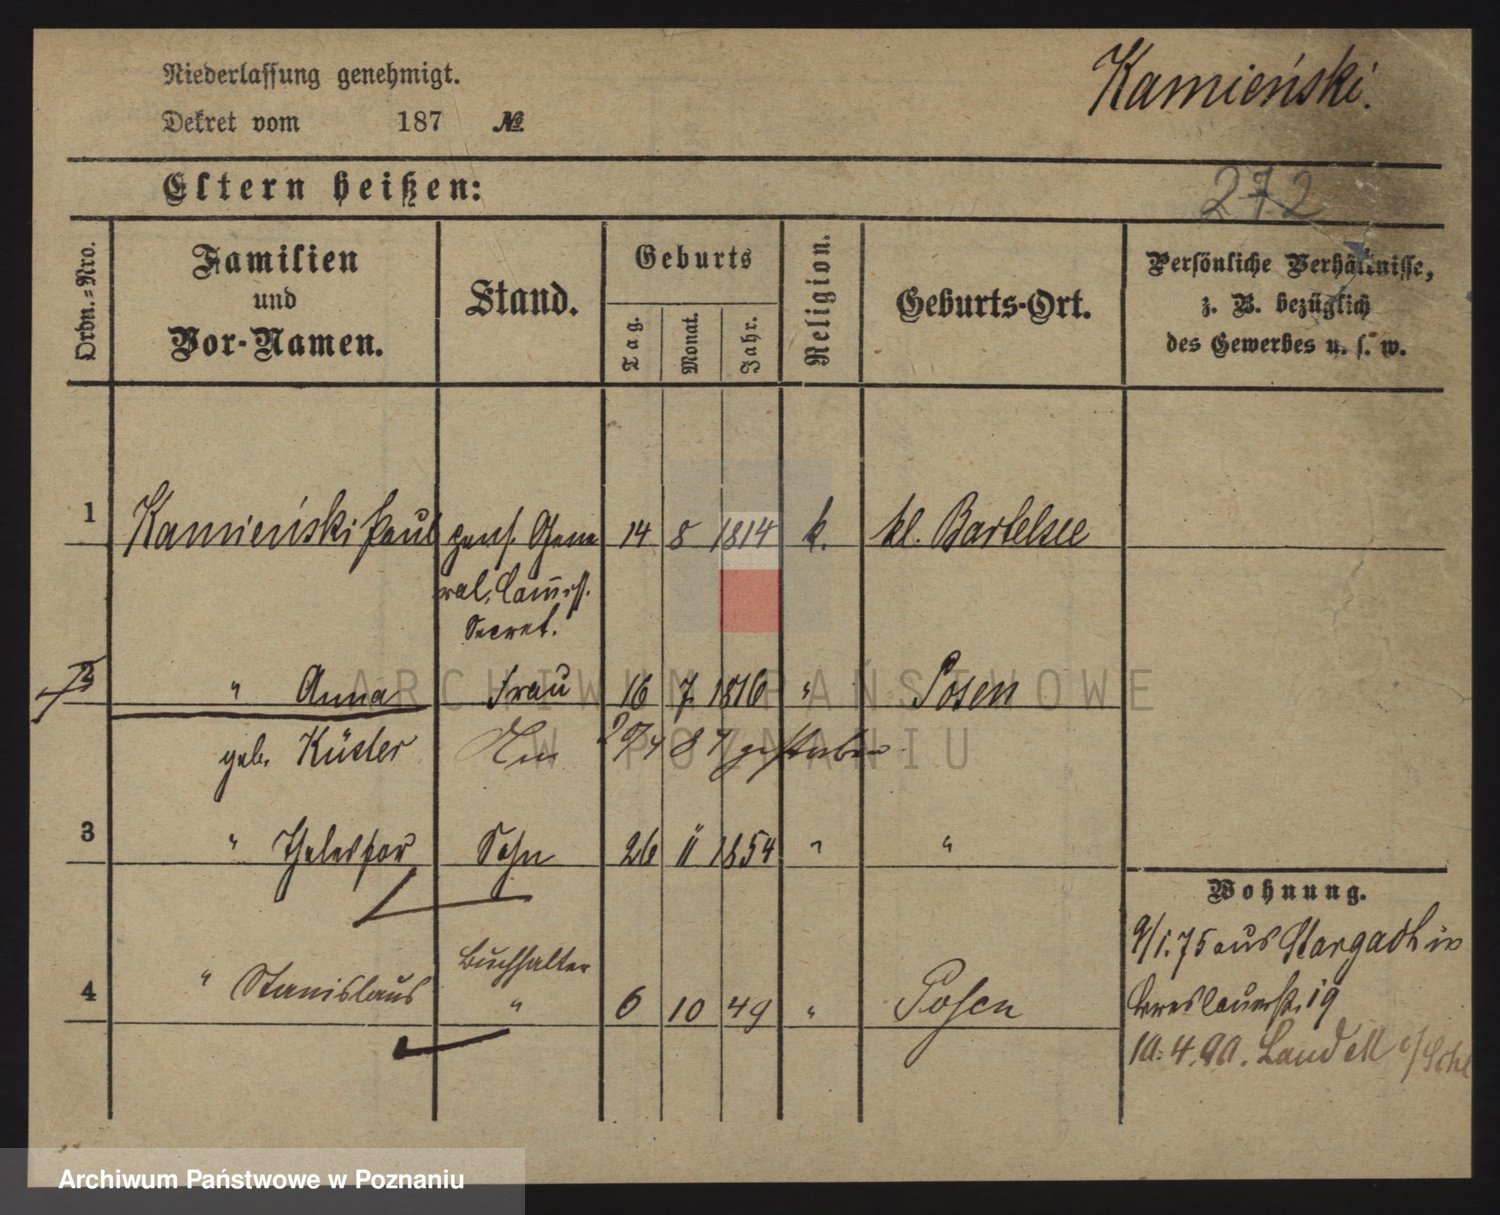 Niederlassung genehmigt.
Kamieński.
Dekret vom 187 №
Eltern heißen:
272
Ordn.=Nro.
Familien
und
Vor-Namen.
Stand.
Geburts
Tag.
Monat.
Jahr.
Religion.
Geburts-Ort.
Persönliche Verhältnisse,
z. B. bezüglich
des Gewerbes u. s. w.
1 Kamieński Paul pens. Gene 14 8 1814 k. kl. Bartelsee
ral. Commiss.
Secret.
2 " Anna Frau 16 7 1816 " Posen
geb. Küster 87 gestorben
3 " Thelesfor Sohn 26 11 1854 " "
Wohnung.
9/1.75 aus Stargardt in
Buchhalter
4 " Stanislaus " 6 10 49 " Posen
Breslauerstr. 19
10.4.90. Landek i/Schl
ARCHIWUM PAŃSTWOWE
W POZNANIU
Archiwum Państwowe w Poznaniu